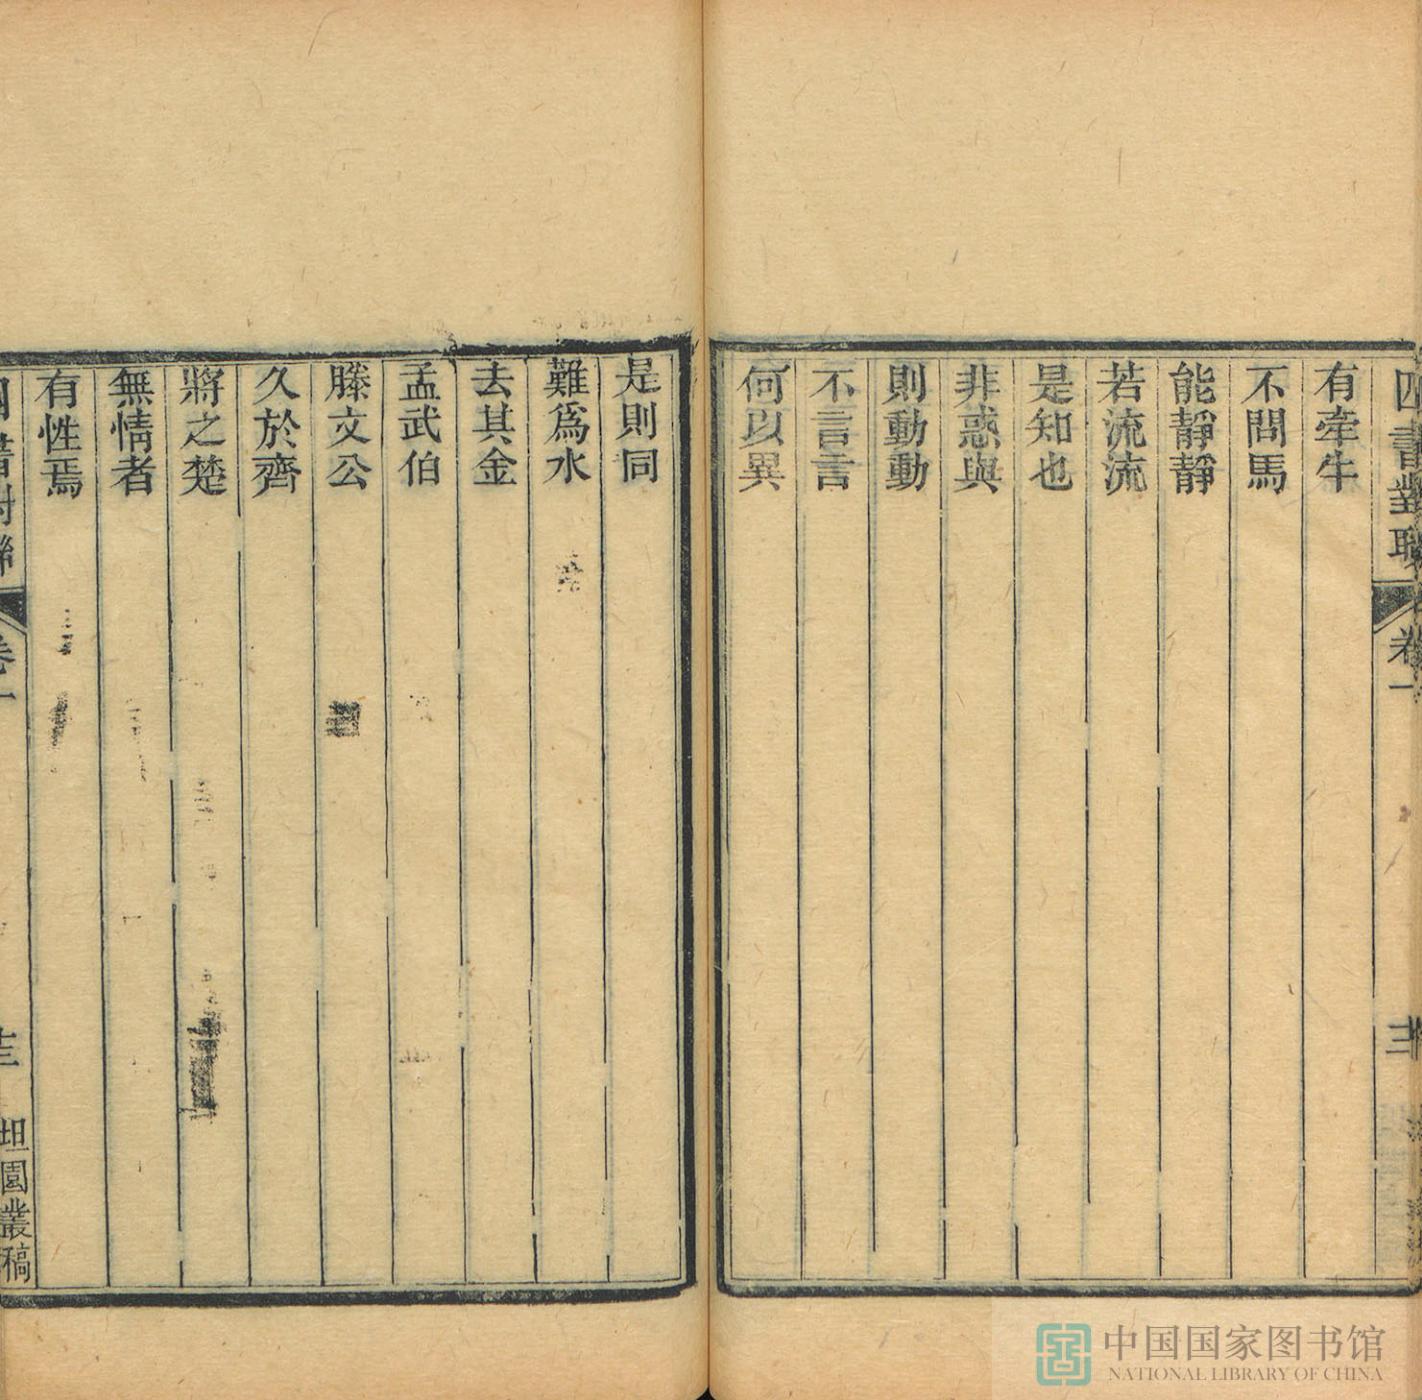 四書對聯 卷一
有牽牛
不問馬
能靜靜
若流流
是知也
非惑與
則動動
不言言
何以異
是則同
難爲水
去其金
孟武伯
滕文公
久於齊
將之楚
無情者
有性焉
四書對聯 卷一 坦園叢稿
中国国家图书馆
NATIONAL LIBRARY OF CHINA